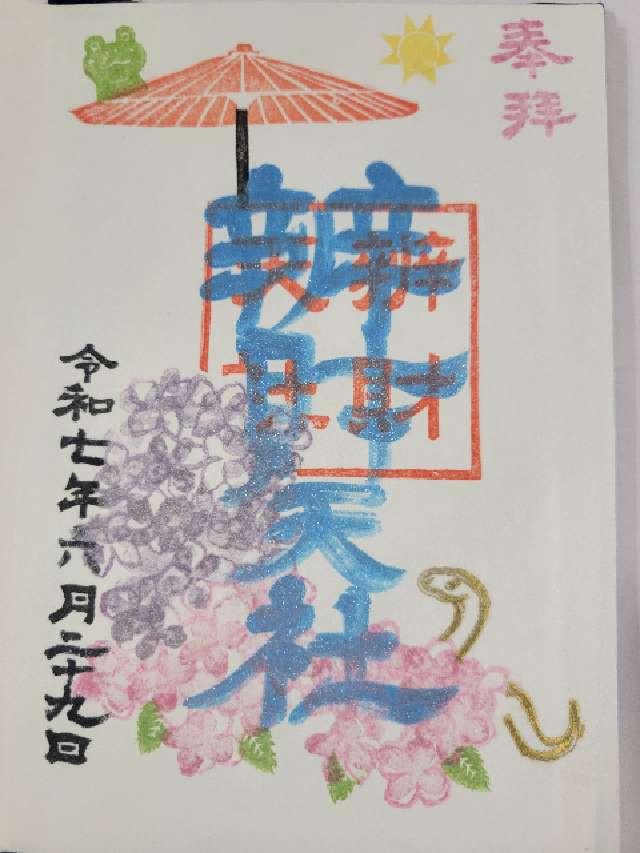 奉拜
辨財天社
辨財
天社
令和七年六月二十九日